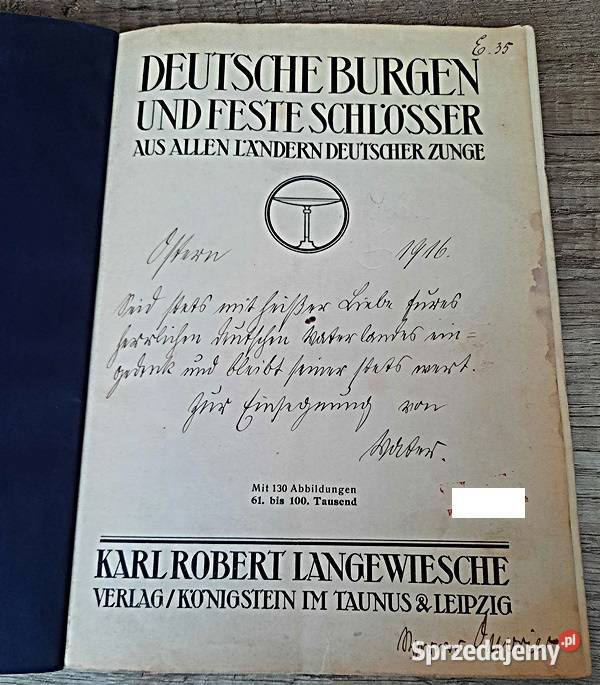 E. 35
DEUTSCHE BURGEN
UND FESTE SCHLÖSSER
AUS ALLEN LÄNDERN DEUTSCHER ZUNGE
Ostern 1916.
Seid stets mit heißer Liebe Eures
herrlichen deutschen Vaterlandes ein=
gedenk und bleibt seiner stets wert.
Zur Einsegnung von
Vater.
Mit 130 Abbildungen
61. bis 100. Tausend
KARL ROBERT LANGEWIESCHE
VERLAG/KÖNIGSTEIN IM TAUNUS & LEIPZIG
Sprzedajemy.pl